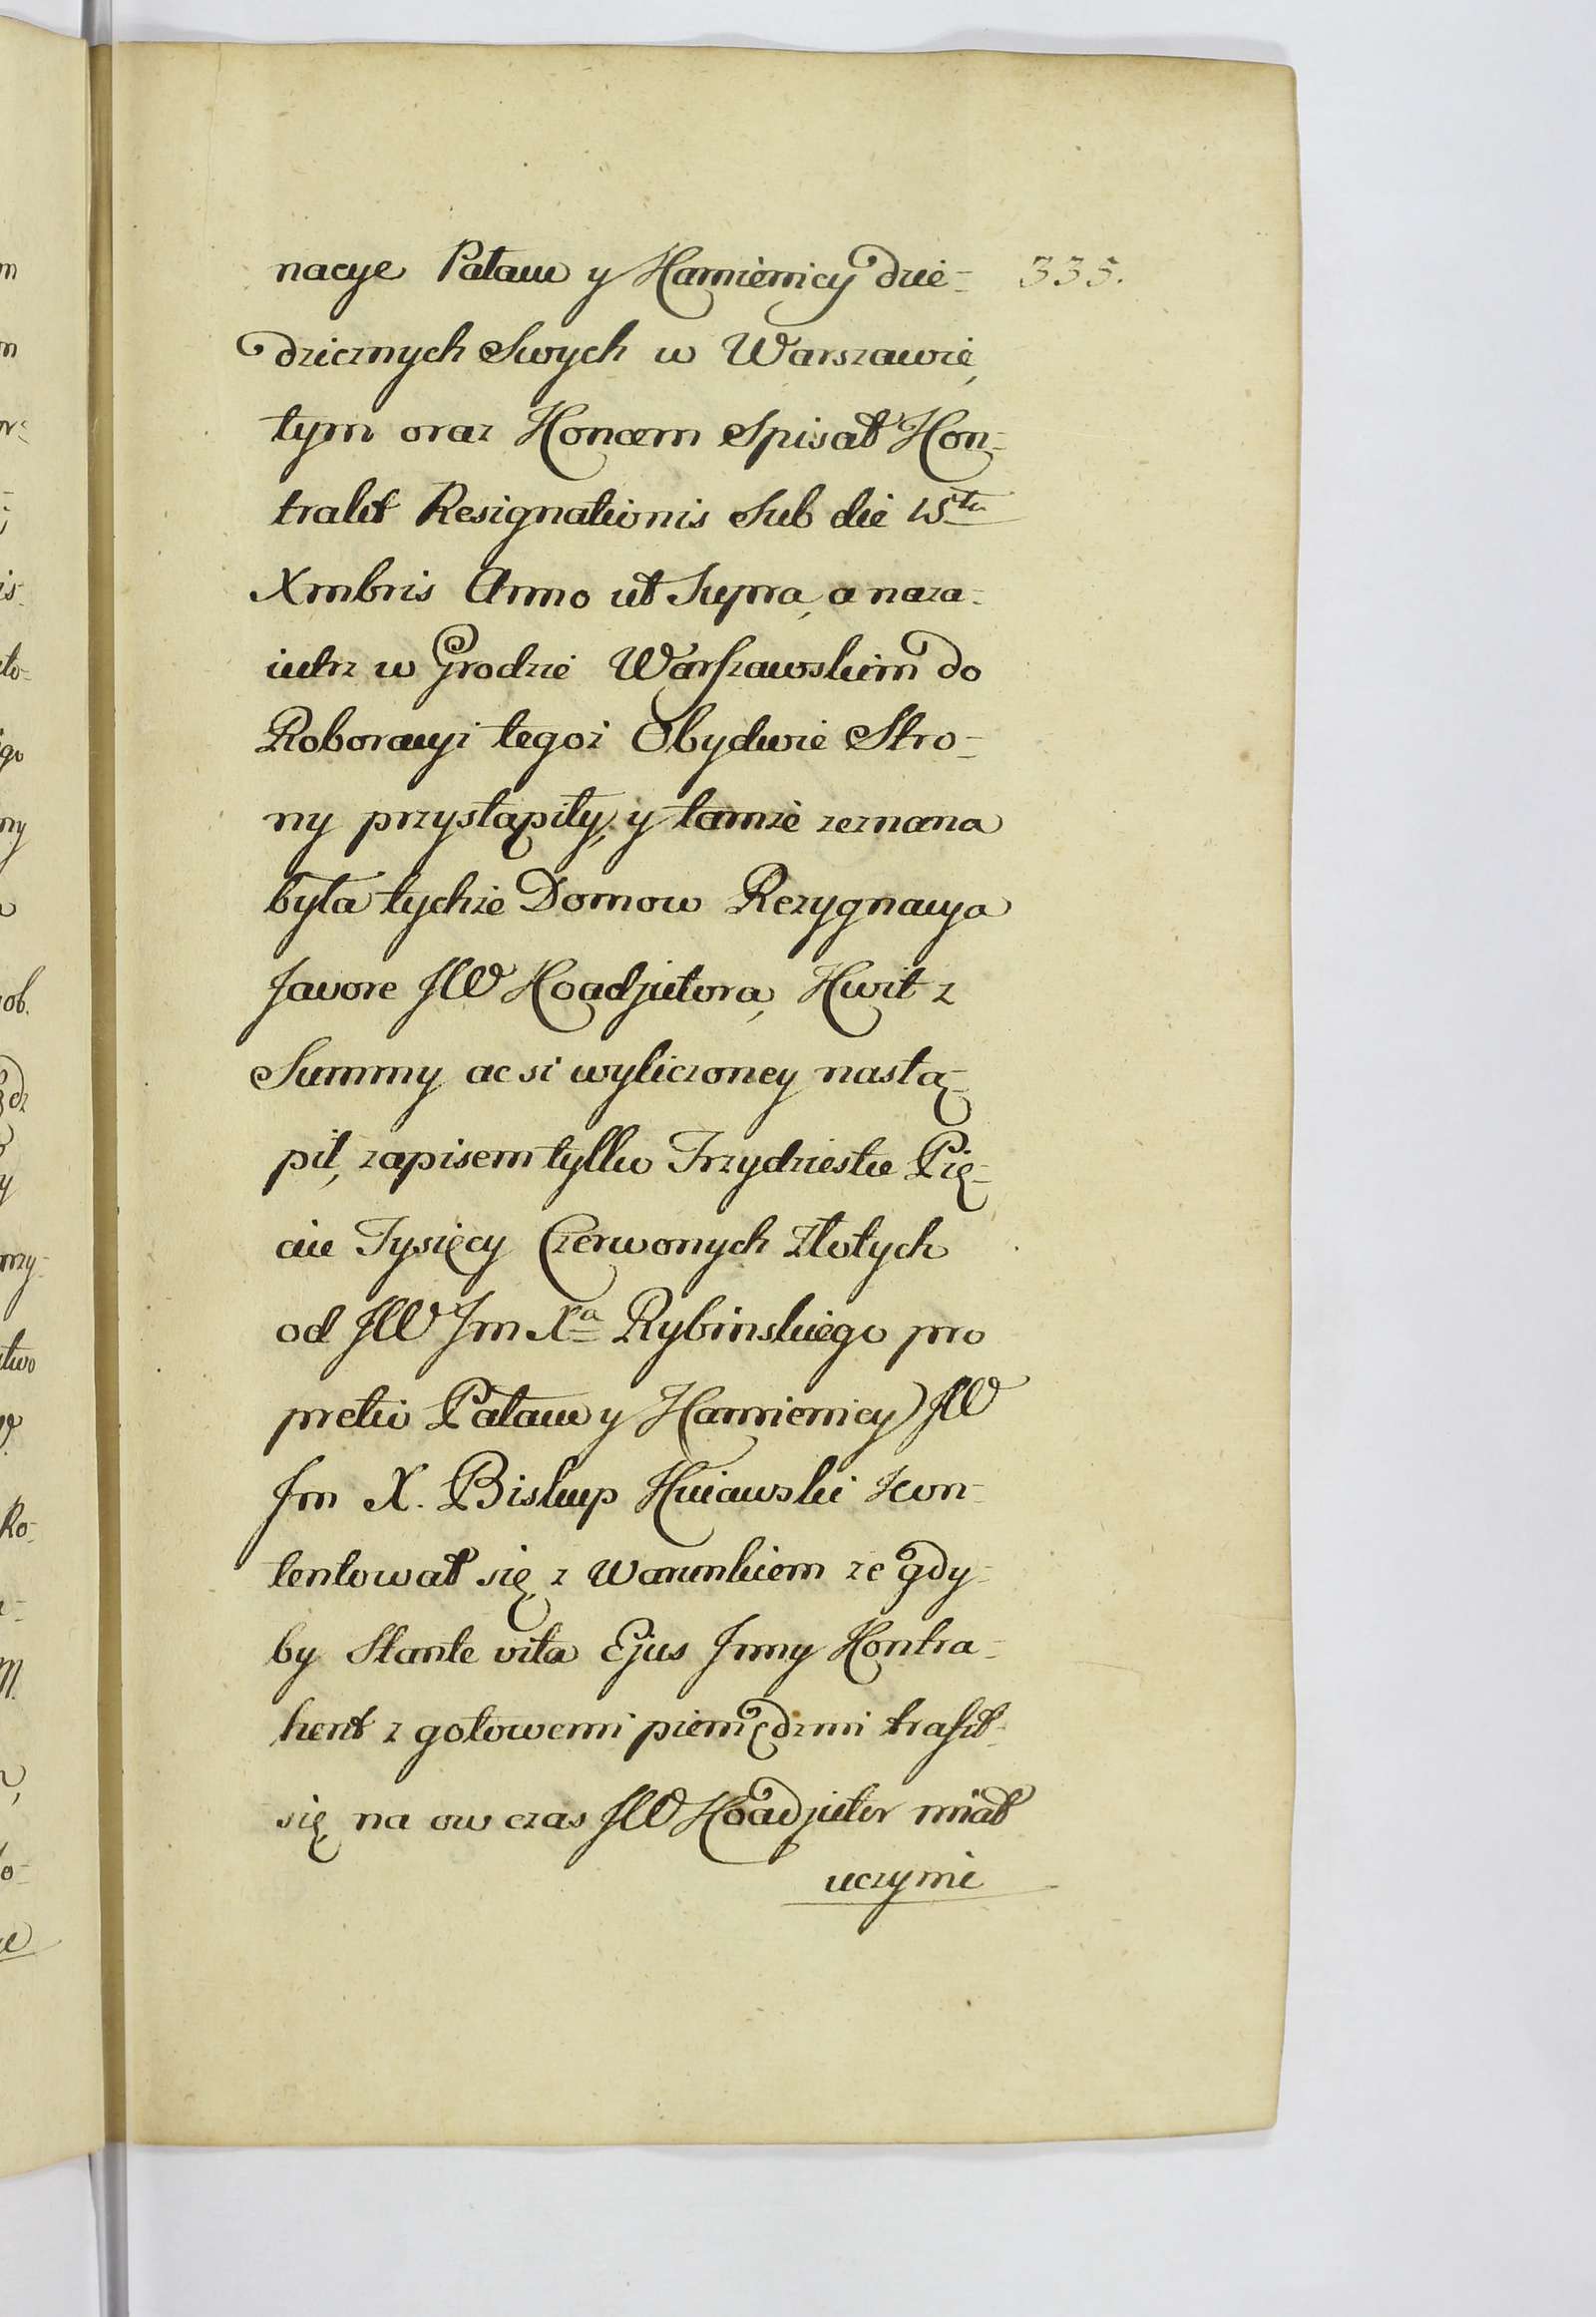 nacye Pałacu y Kamienicy dzie- 335.
dzicznych Swych w Warszawie,
tym oraz Koncem Spisał Kon-
trakt Resignationis Sub die 15ta
Xmbris Anno ut Supra, a naza-
iutrz w Grodzie Warszawskim do
Roboracyi tegoż Obydwie Stro-
ny przystąpiły, y tamże zeznana
była tychże Domow Rezygnacya
favore JW Koadjutora, Kwit z
Summy ac si wyliczoney nastą-
pił, zapisem tylko Trzydziestu Pię-
ciu Tysięcy Czerwonych Złotych
od JW Jm Xa Rybinskiego pro
pretio Pałacu y Kamienicy JW
Jm X. Biskup Kuiawski kon-
tentował się z Warunkiem ze gdy-
by Stante vita Ejus Jnny Kontra-
hent z gotowemi pieniędzmi trafił
się na ow czas JW Koadjutor miał
uczynić